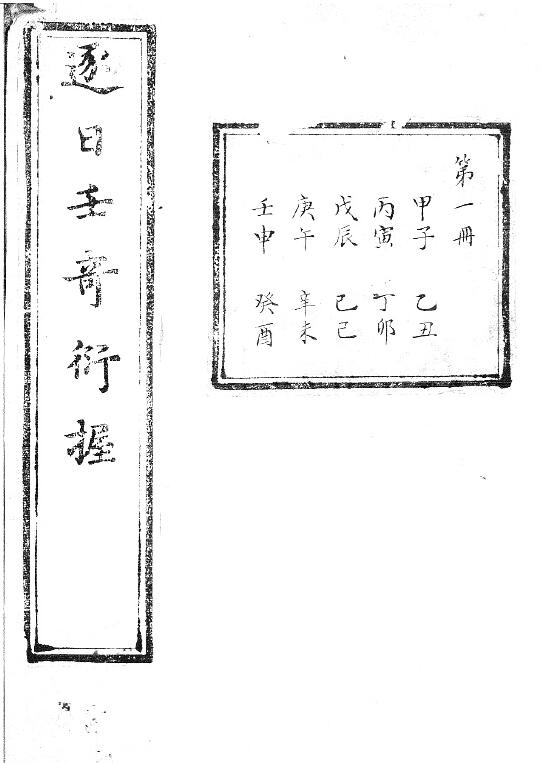 第一冊
甲子 乙丑
丙寅 丁卯
戊辰 己巳
庚午 辛未
壬申 癸酉
逐日壬奇衍握